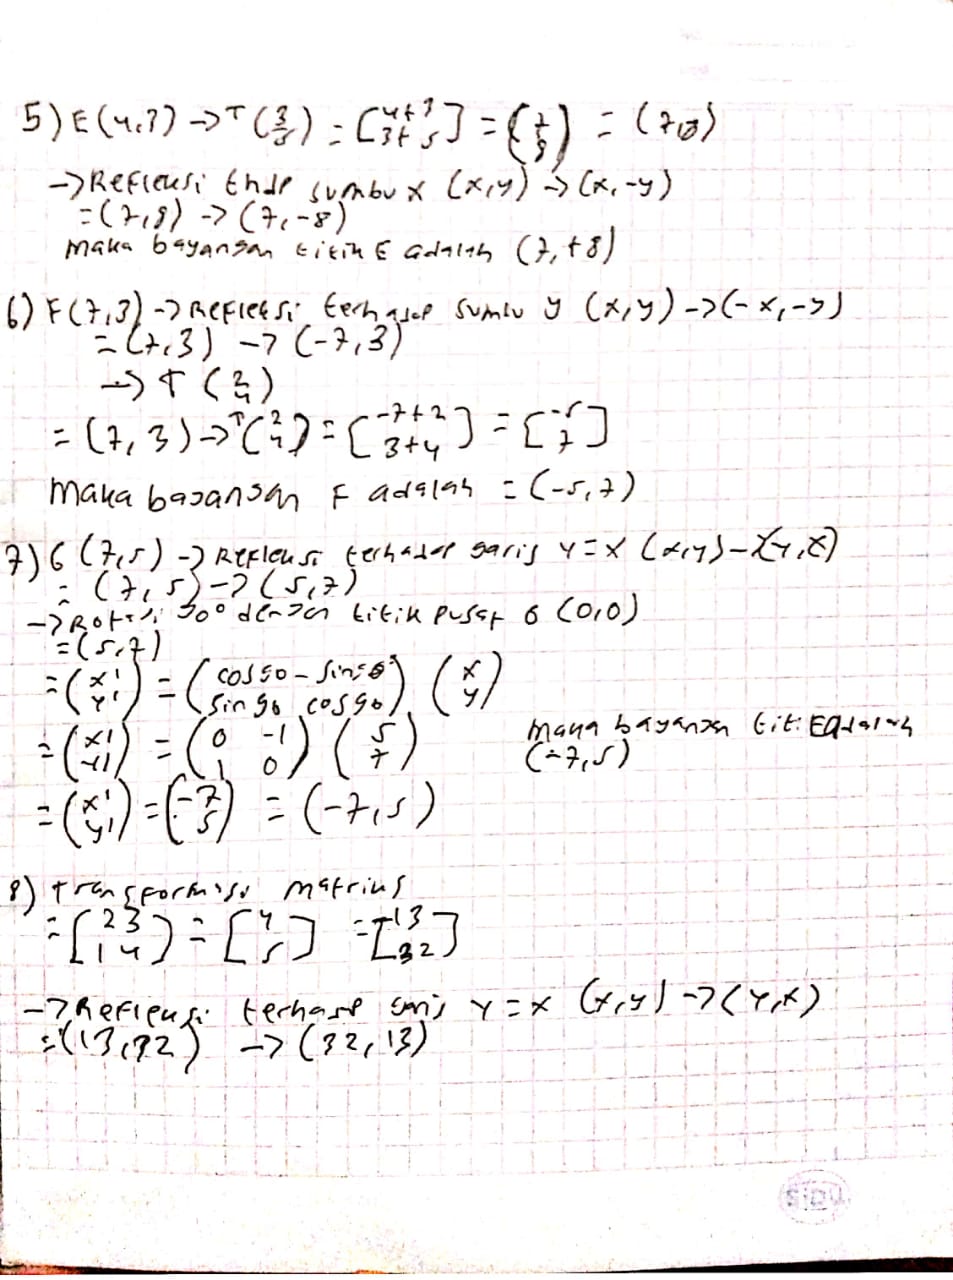 5) E (4,3) -> T (3 5) = [4+3 3+5] = (7 8) = (7,8)
-> Refleksi thdp sumbu x (x,y) -> (x,-y)
= (7,8) -> (7,-8)
maka bayangan titik E adalah (7,+8)
6) F(7,3) -> Refleksi terhadap sumbu y (x,y) -> (-x,-y)
= (7,3) -> (-7,3)
-> T (2 4)
= (7,3) -> T (2 4) = [-7+2 3+4] = [-5 7]
Maka bayangan F adalah = (-5,7)
7) G (7,5) -> Refleksi terhadap garis y=x (x,y) - (y,x)
= (7,5) -> (5,7)
-> Rotasi 90° dengan titik pusat 0 (0,0)
= (5,7)
= (x' y') = (cos 90 - sin 90 sin 90 cos 90) (x y)
= (x' y') = (0 -1 1 0) (5 7)
Maka bayangan titi Eadalah
(-7,5)
= (x' y') = (-7 5) = (-7,5)
8) transformasi matriks
= [2 3 1 4] = [4 5] = [13 32]
-> Refleksi terhadap garis y=x (x,y) -> (y,x)
= (13,32) -> (32,13)
SIDU